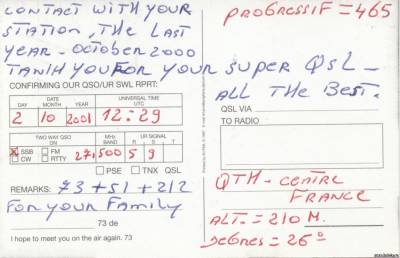 CONTACT WITH YOUR
STATION, THE LAST
YEAR - OCTOBER 2000
TANH YOU FOR YOUR SUPER QSL -
ALL THE BEST.
PROGRESSIF = 465
CONFIRMING OUR QSO/UR SWL RPRT:
DAY DATE MONTH YEAR UNIVERSAL TIME UTC
2 10 2001 12:29
TWO WAY QSO ON MHz BAND UR SIGNAL R S T
SSB FM 27,500 5 9
CW RTTY
PSE TNX QSL
REMARKS: 73 + 51 + 212
FOR YOUR FAMILY
73 de
I hope to meet you on the air again. 73
QSL VIA
TO RADIO
QTH - CENTRE
FRANCE
ALT. = 210 M.
= 26°